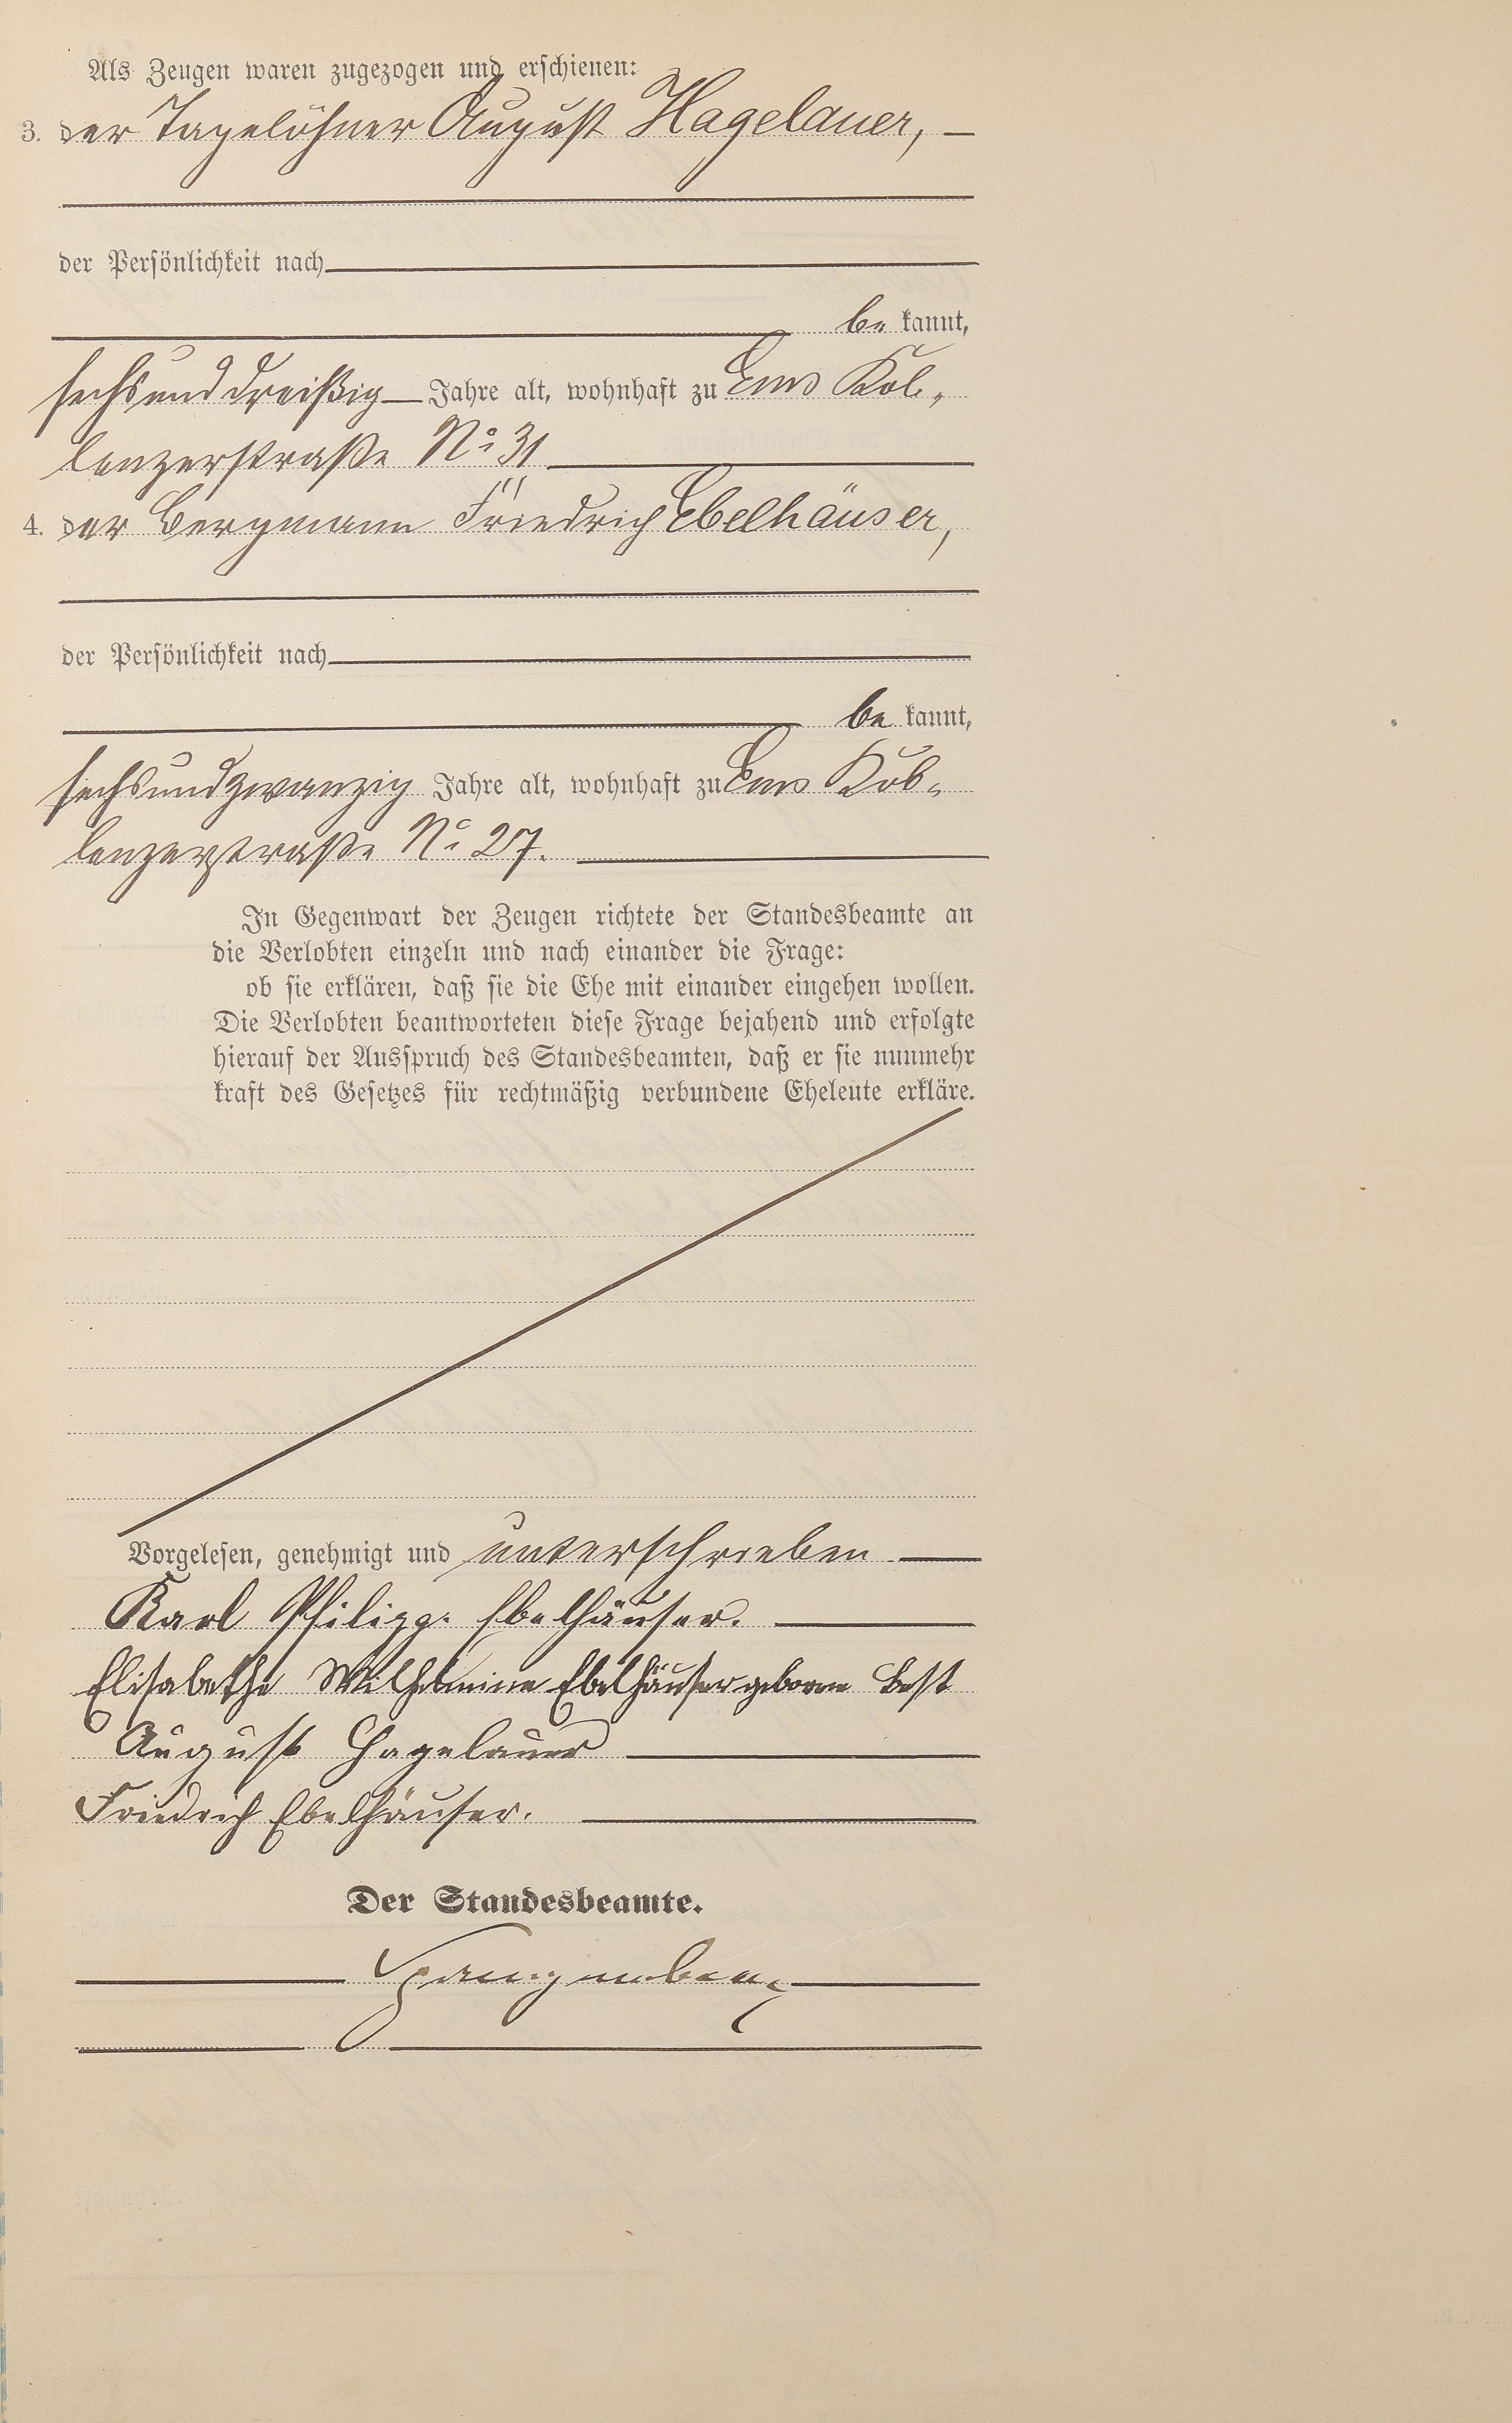 Als Zeugen waren zugezogen und erschienen:
3. der Tagelöhner August Hagelauer,
der Persönlichkeit nach
be kannt,
sechsunddreißig Jahre alt, wohnhaft zu Ems Kob-
lenzerstraße No 31
4. der Bergmann Friedrich Ebelhäuser,
der Persönlichkeit nach
be kannt,
sechsundzwanzig Jahre alt, wohnhaft zu Ems Kob-
lenzerstraße No 27.
In Gegenwart der Zeugen richtete der Standesbeamte an
die Verlobten einzeln und nach einander die Frage:
ob sie erklären, daß sie die Ehe mit einander eingehen wollen.
Die Verlobten beantworteten diese Frage bejahend und erfolgte
hierauf der Ausspruch des Standesbeamten, daß er sie nunmehr
kraft des Gesetzes für rechtmäßig verbundene Eheleute erkläre.
Vorgelesen, genehmigt und unterschrieben
Karl Philipp. Ebelhäuser.
Elisabethe Wilhelmine Ebelhäuser geborne Best
August Hagelauer
Friedrich Ebelhäuser.
Der Standesbeamte.